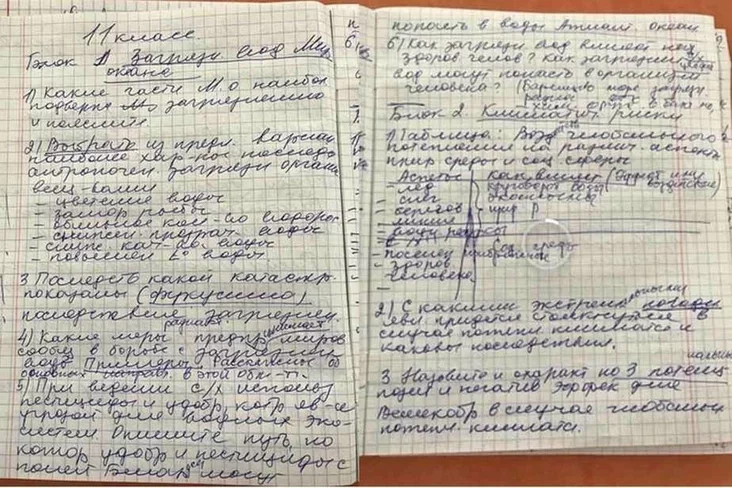 11 класс.
Блок 1 Загрязн вод Мир
океана
1) Какие части М. о наибол
подверж загрязнению
и поясните
2) Выбрать из предл. вариан
наиболее хар-ные последс
антропоген. загрязн органи
вещ-вами
- цветение воды
- замор рыбы
- большое кол-во водорос
- сниж прозрач воды
- сниж кач-ва воды
- повышен t° воды
3 Последств какой катастр.
показаны (Фукусима)
последствие загрязнен.
4) Какие меры предпр мировое
сообщ в борьбе с загрязнением
воды
в этой обл-ти.
5) При ведении с/х использ
пестициды и удобр, котр яв-ся
угрозой для водных эко-
систем. Опишите путь, по
котор удобр и пестициды с
полей Белар могут
попасть в воды Атлант. океан
6) Как загрязн вод влияет на
здоров челов? Как загрязн
вод могут попасть в организм
человека?
Блок 2. Климатич. риски
1) Таблица: Возд глобального
потепления на различ. аспекты
прир среды и соц. сферы
- Аспекты как влияет
- лёд круговорот воды
- снег экосистемы
- берегов
линия
- водн ресурсы
- с/х
- посел прибрежные соц. среды
- здоров
человека
2) С какими экстрем погодн
явл придется столкнуться в
случае потепл климата и
каковы последствия.
3 Назовите и охаракт по 3 потенц
позит и негатив эффек для
в случае глобальн
потепл климата.